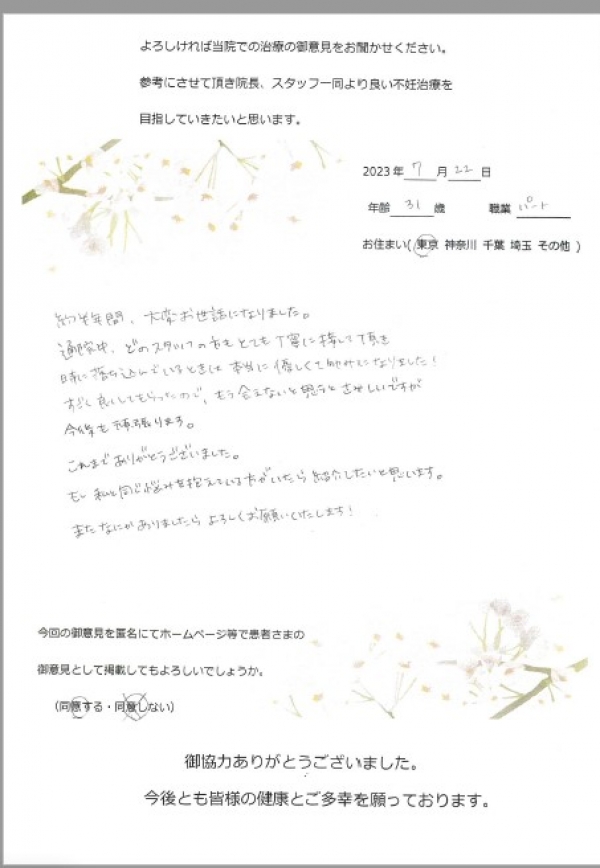 よろしければ当院での治療の御意見をお聞かせください。
参考にさせて頂き院長、スタッフ一同より良い不妊治療を
目指していきたいと思います。
2023年 7 月 22 日
年齢 31 歳 職業 パート
お住まい( 東京 神奈川 千葉 埼玉 その他 )
約半年間、大変お世話になりました。
通院中、どのスタッフの方もとても丁寧に接して頂き
時に落ち込んでいるときは本当に優しくて励みになりました!
すごく良くしてもらったので、もう会えないと思うとさみしいですが
今後も頑張ります。
これまでありがとうございました。
もし私と同じ悩みを抱えている方がいたら紹介したいと思います。
またなにかありましたらよろしくお願いいたします!
今回の御意見を匿名にてホームページ等で患者さまの
御意見として掲載してもよろしいでしょうか。
(同意する・同意しない)
御協力ありがとうございました。
今後とも皆様の健康とご多幸を願っております。